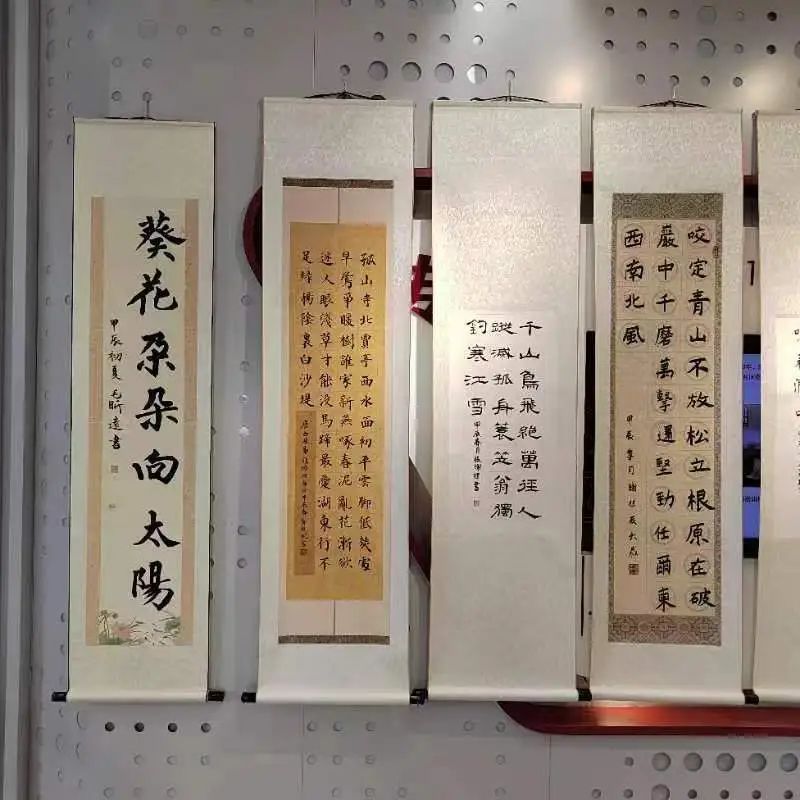 葵花朵朵向太陽
甲辰初夏毛昕遠書
孤山寺北賈亭西水面初平雲腳低幾處
早鶯爭暖樹誰家新燕啄春泥亂花漸欲
迷人眼淺草才能沒馬蹄最愛湖東行不
足綠楊陰裏白沙堤
千山鳥飛絕萬徑人
蹤滅孤舟蓑笠翁獨
釣寒江雪
甲辰春月
咬定青山不放松立根原在破
巖中千磨萬擊還堅勁任爾東
西南北風
甲辰